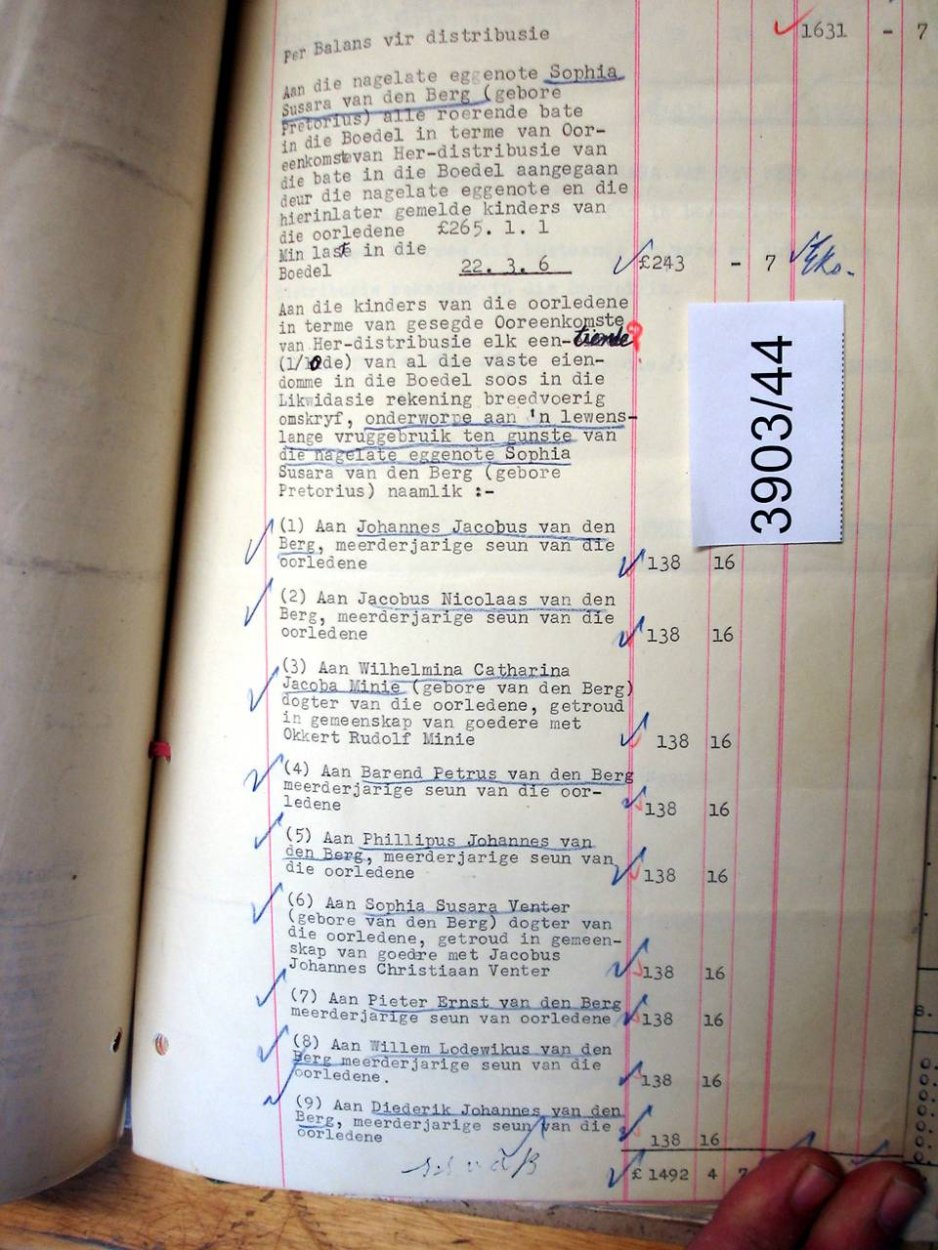 Per Balans vir distribusie 1631 - 7
Aan die nagelate eggenote Sophia
Susara van den Berg (gebore
Pretorius) alle roerende bate
in die Boedel in terme van Oor-
eenkomstevan Her-distribusie van
die bate in die Boedel aangegaan
deur die nagelate eggenote en die
hierinlater gemelde kinders van
die oorledene £265. 1. 1
Min laste in die
Boedel 22. 3. 6 £243 - 7
Aan die kinders van die oorledene
in terme van gesegde Ooreenkomste
van Her-distribusie elk een-tiende
(1/10de) van al die vaste eien-
domme in die Boedel soos in die
Likwidasie rekening breedvoerig
omskryf, onderworpe aan 'n lewens-
lange vruggebruik ten gunste van
die nagelate eggenote Sophia
Susara van den Berg (gebore
Pretorius) naamlik :-
3903/44
(1) Aan Johannes Jacobus van den
Berg, meerderjarige seun van die
oorledene 138 16
(2) Aan Jacobus Nicolaas van den
Berg, meerderjarige seun van die
oorledene 138 16
(3) Aan Wilhelmina Catharina
Jacoba Minie (gebore van den Berg)
dogter van die oorledene, getroud
in gemeenskap van goedere met
Okkert Rudolf Minie 138 16
(4) Aan Barend Petrus van den Berg
meerderjarige seun van die oor-
ledene 138 16
(5) Aan Phillipus Johannes van
den Berg, meerderjarige seun van
die oorledene 138 16
(6) Aan Sophia Susara Venter
(gebore van den Berg) dogter van
die oorledene, getroud in gemeen-
skap van goedre met Jacobus
Johannes Christiaan Venter 138 16
(7) Aan Pieter Ernst van den Berg
meerderjarige seun van oorledene 138 16
(8) Aan Willem Lodewikus van den
Berg meerderjarige seun van die
oorledene. 138 16
(9) Aan Diederik Johannes van den
Berg, meerderjarige seun van die
oorledene 138 16
£ 1492 4 7